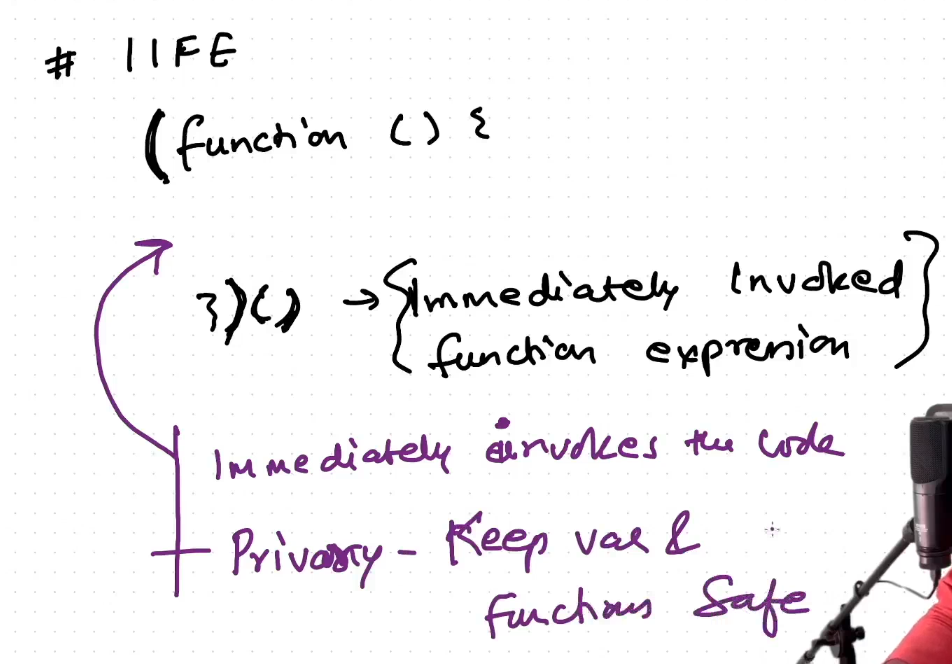 # IIFE
(function () {
})() → { Immediately Invoked
function expression }
Immediately invokes the code
Privacy - Keep var &
functions Safe